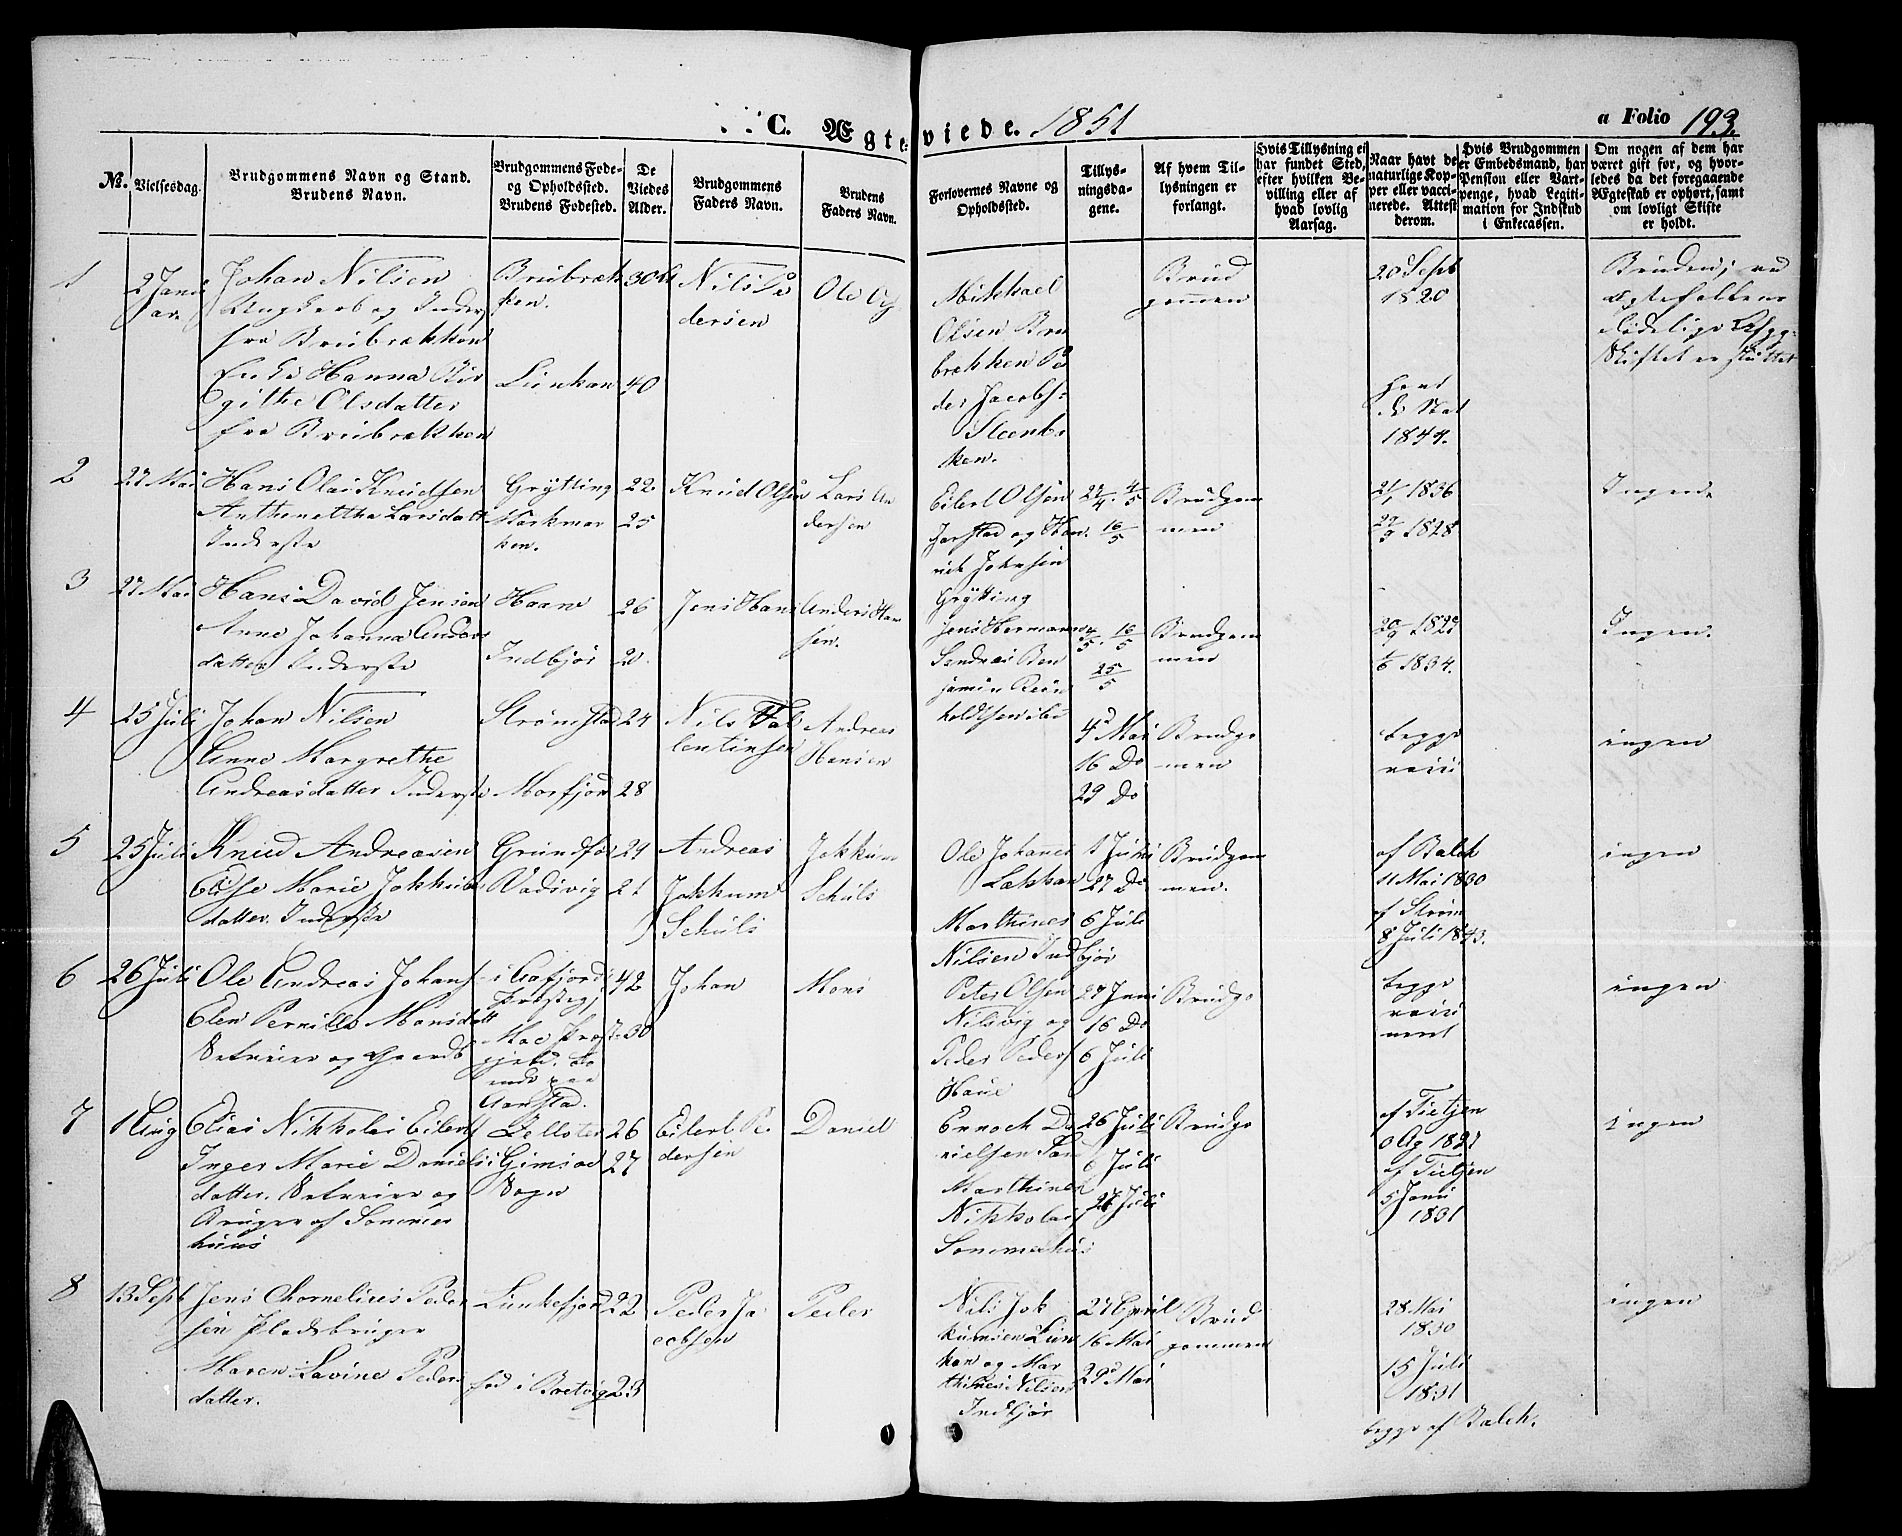 C. Ægte-
viede. 1851
a Folio 193.
No.
Vielsesdag.
Brudgommens Navn og Stand.
Brudens Navn.
Brudgommens Føde-
og Opholdssted.
Brudens Fødested.
De
Viedes
Alder.
Brudgommens
Faders Navn.
Brudens
Faders Navn.
Forlovernes Navne og
Opholdssted.
Tillys-
ningsda-
gene.
Af hvem Til-
lysningen er
forlangt.
Hvis Tillysning ei
har fundet Sted,
efter hvilken Be-
villing eller af
hvad lovlig
Aarsag.
Naar havt de
naturlige Kop-
per eller vacci-
nerede. Attest
derom.
Hvis Brudgommen
er Embedsmand, har
Pension eller Vart-
penge, hvad Legiti-
mation for Indskud
i Enkecassen.
Om nogen af dem har
været gift før, og hvor-
ledes da det foregaaende
Ægteskab er ophørt, samt
om lovligt Skifte
er holdt.
1
2 Janu
ar
Johan Nilsen
Ungkarl og Inderst
fra Brubrækken
Enke Hanna Bir
githe Olsdatter
fra Brubrækken
Brubræk
ken.
Lunkan
30
40
Nils Pe
dersen
Ole
Mikkael
Olsen Bru
brækken Pe
der Jacobs
ken.
Brud
gommen
20 Sept
1820
1844.
Bruden;
Skiftet er sluttet
2
27 Mai
Hans Olai Knudsen
Anthonettha Larsdatt
Inderste
Grytting
Markmar
ken.
22.
25
Knud Olsen
Lars An
dersen
Eilert Olsen
Jarstad og Hen
rik Johnsen
Grytting
27/4. 4/5
16/5
Brudgom
men
21/ 1836
29/9 1828
Ingen
3
27 Mai
Hans David Jensen
Anne Johanna Anders
datter, Inderste
Haaw
Indbjør
26
20.
Jens Hans
Anders Han
sen.
Jens Hermann
Sandnes Ben
jamin Rein
holdtsen ibd
/5. 16/5
25/5
Brudgom
men
20/9 182
/6 1834.
Ingen.
4
25 Juli
Johan Nilsen
Anne Margrethe
Andreasdatter Inderste
Strømstad
Morfjord
24
28
Nils Fal
lentinsen
Andreas
Hansen
4 Mai
16 Do
29 Do
Brudgo
men
begge
vacci
ingen
5
25 Juli
Knud Andreasen
Elise Marie Jokkum
datter. Inderste
Grundfør
Vadsvig
29
21
Andreas
Jokkum
Schuls
Jokkum
Schuls
Ole Johanes
Lækkan
Marthines
Nilsen Indbjør
1 Juni
27 Do
6 Juli
Brudgom
men.
af Balck
11 Mai 1830
af Strøm
8 Juli 1843.
ingen
6
26 Juli
Ole Andreas Johans
Elen Pernille Monsdatt
Selveier og Gaardb
i Gafjord
Præsteg
Moe Præst
gjeld. Bo
ende paa
Aarstad.
42
30
Johan
Mons
Peter Olsen
Nilsvig og
Peder Peders
Haue
27 Juni
16 Do
6 Juli
Brudgo
begge
vacci
neret
ingen
7
1 Aug
Elias Nikkolai Eilerts
Inger Marie Daniels
datter. Selveier og
Bruger af Sommer
huus
Gimsøe
Sogn
26
27
Eilert Pe
dersen
Daniel
Ennoch Da
nielsen Sam
Marthines
Nikkolais
Sommerhus
26 Juli
6 Juli
27 Juli
Brudgo
af Tietjen
af Tietjen
5 Janu
1831
ingen
8
13 Sept
Jens Chornelius Peder
sen Pladsbruger
Maren Lavine Peders
datter.
Lunkefjord
fød i Bretvig
22
23
Peder Ja
cobsen
Peder
Nils Jok
kumsen Lun
kan og Mar
thines Nilsen
Indbjør
27 April
16 Mai
29 Mai
Brud
gommen
28 Mai
1830
15 Juli
1831
begge af Balck.
ingen